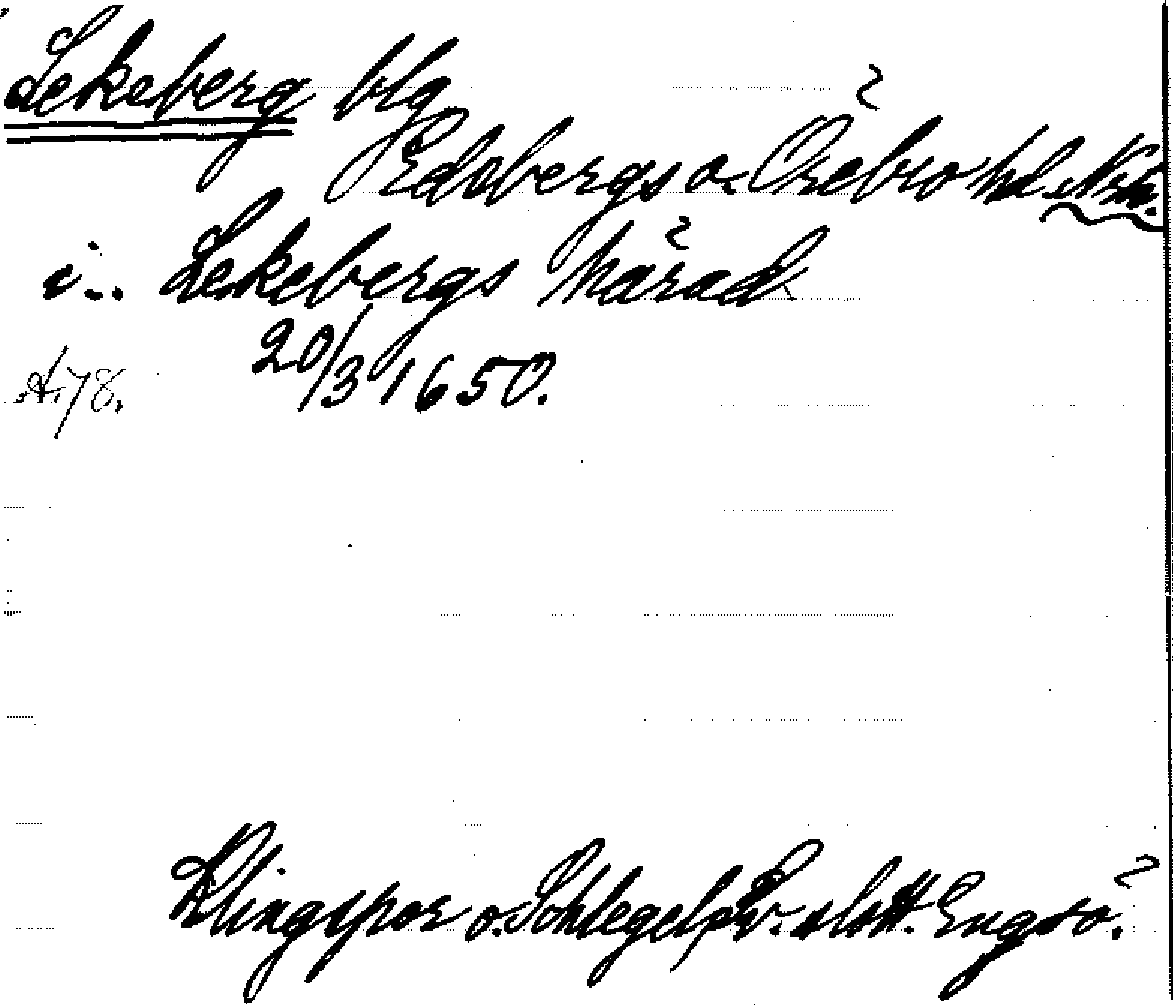 Lekeberg blg
Edsbergs o. Örebro hd Nrk.
i.. Lekebergs härad
20/3 1650.
A. 78.
Klingspor o. Schlegel, Sv. slott. Engsö.